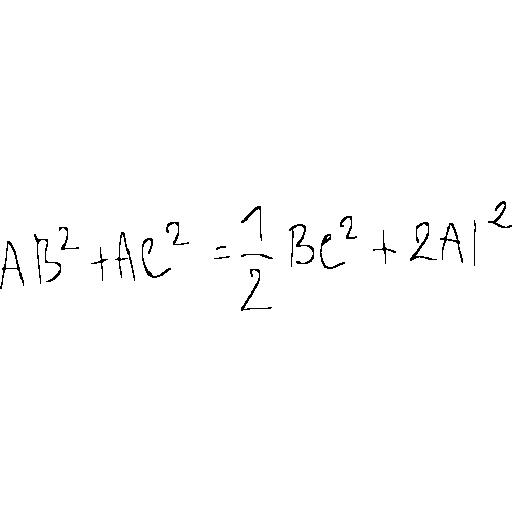 AB² + AC² = 1/2 BC² + 2AI²